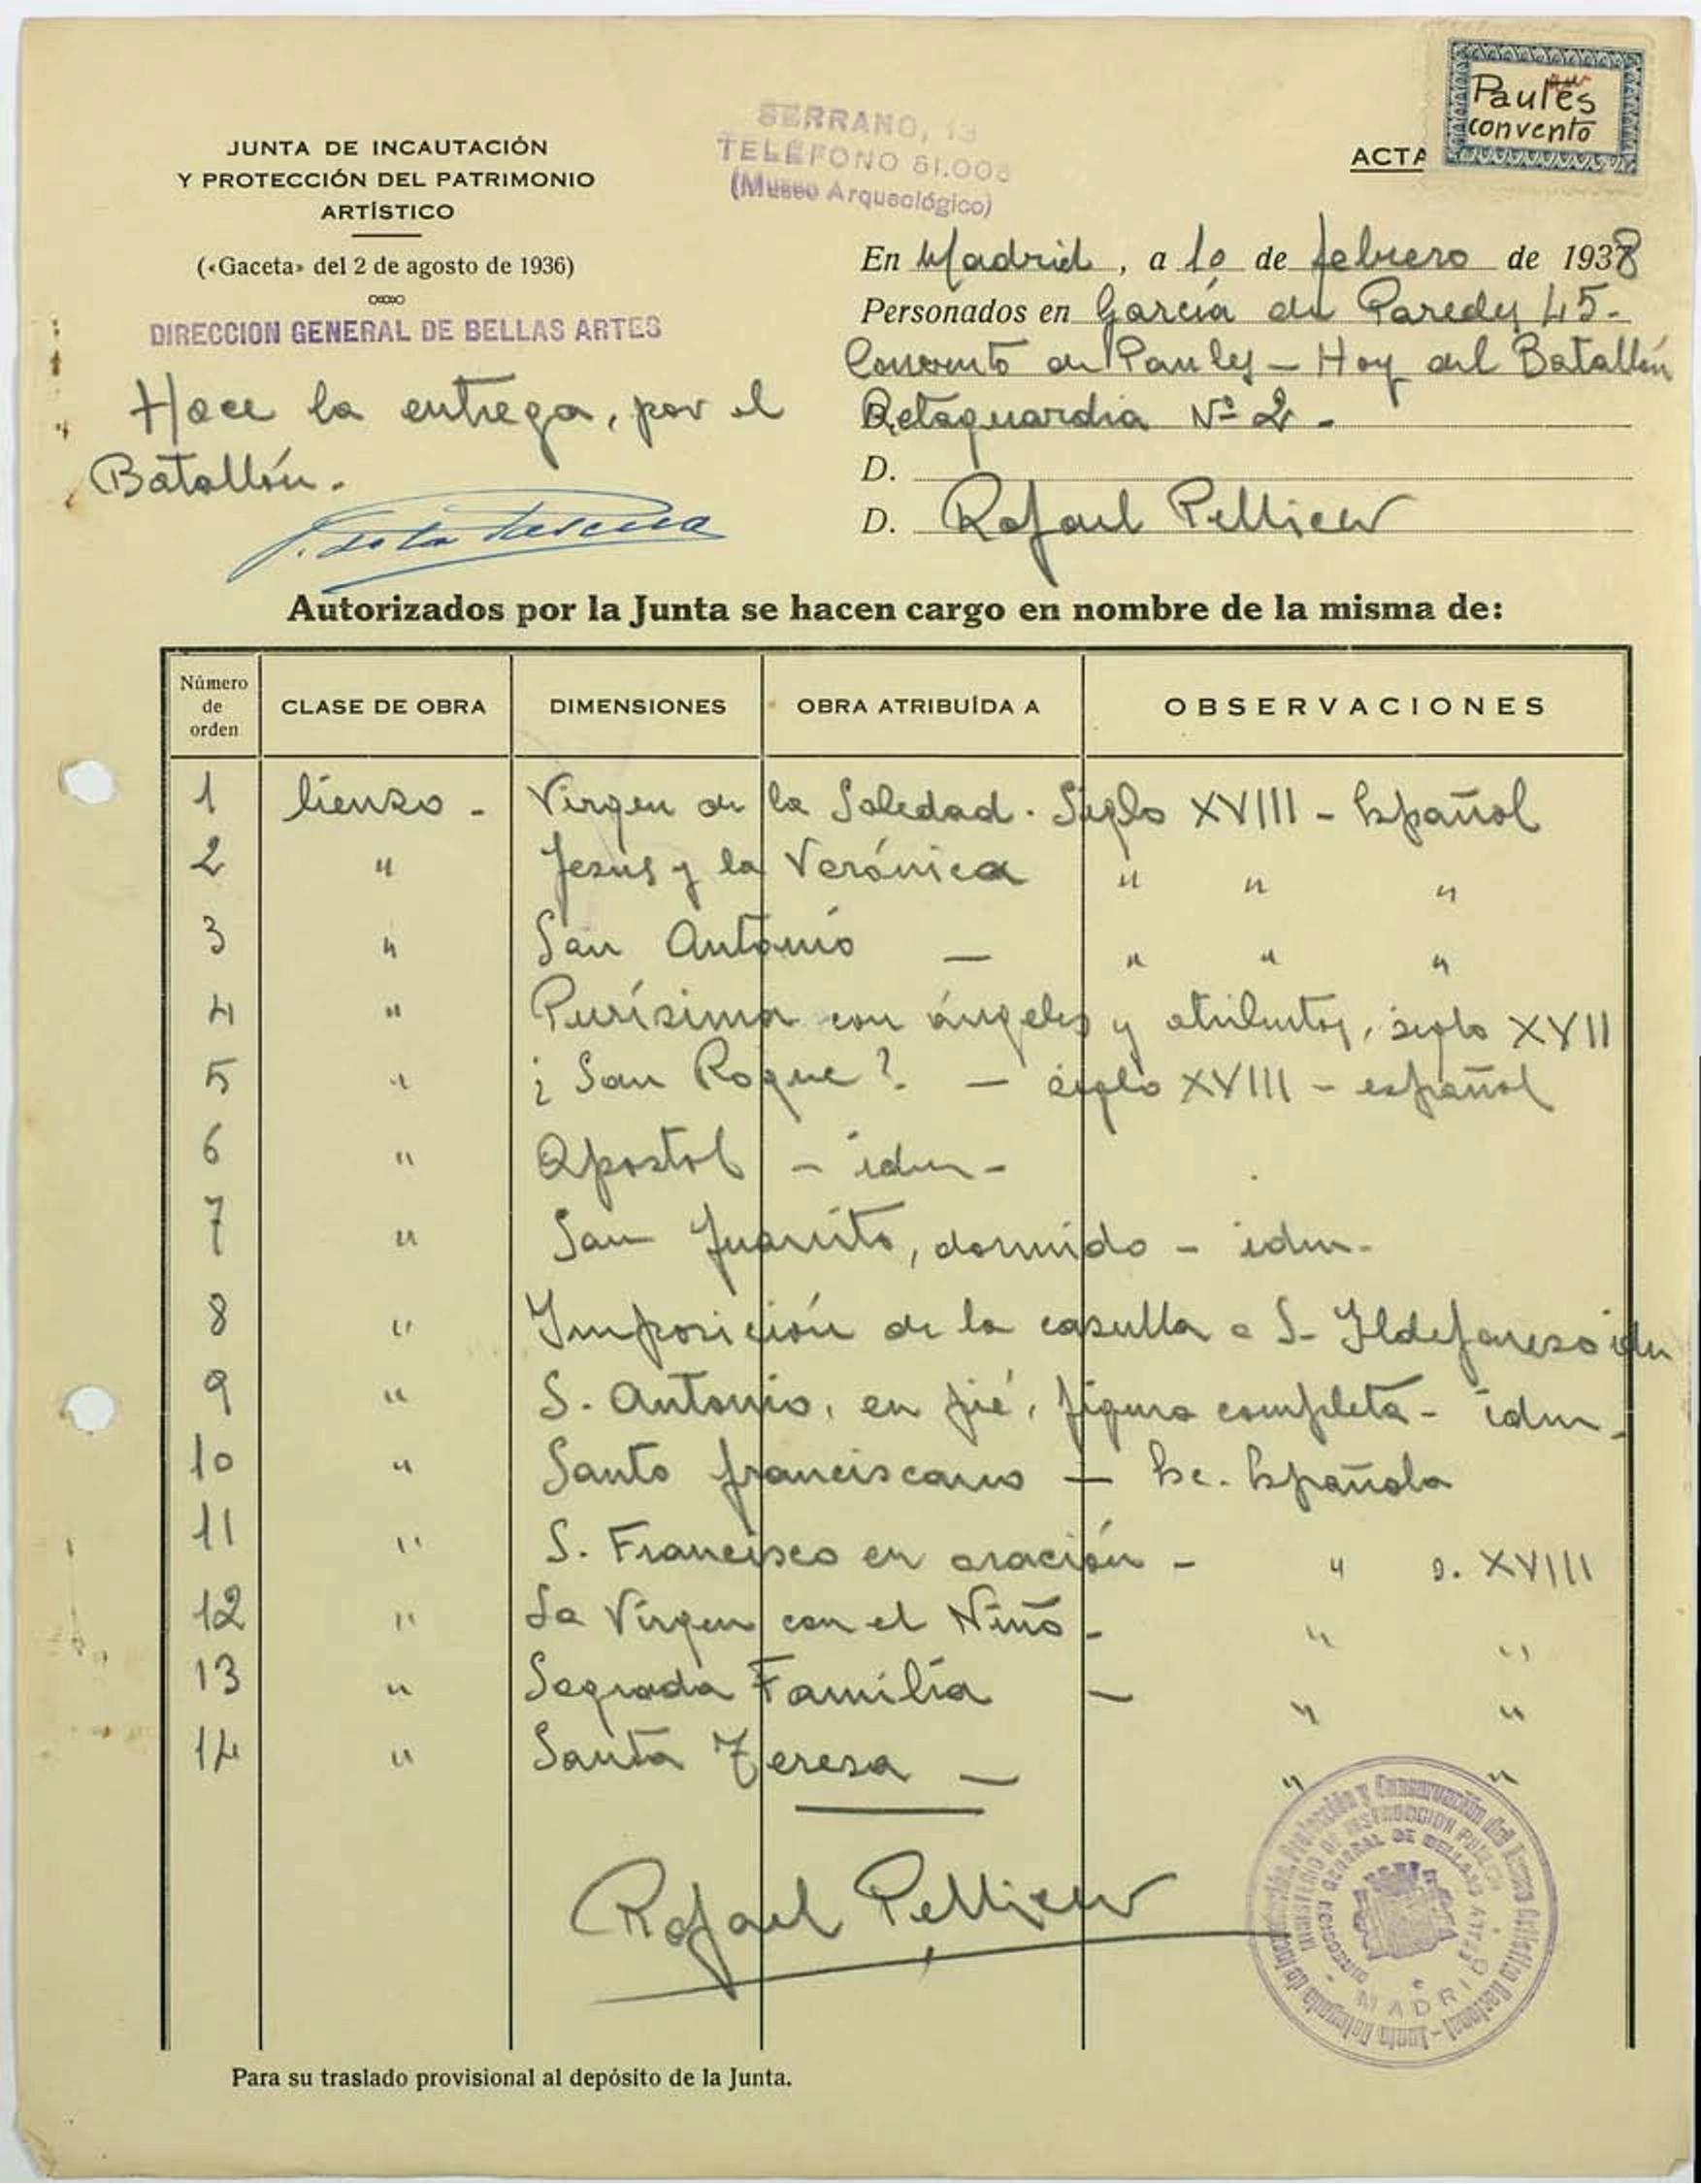 JUNTA DE INCAUTACIÓN
Y PROTECCIÓN DEL PATRIMONIO
ARTÍSTICO
(«Gaceta» del 2 de agosto de 1936)
DIRECCION GENERAL DE BELLAS ARTES
SERRANO, 13
TELÉFONO 61.008
(Museo Arqueológico)
ACTA
Paules
convento
En Madrid, a 10 de febrero de 1938
Personados en García de Paredes 45.-
Convento de Paules – Hoy del Batallón
Retaguardia Nº 2 -
D.
D. Rafael Pellicer
Hace la entrega, por el
Batallón.
Autorizados por la Junta se hacen cargo en nombre de la misma de:
Número de orden CLASE DE OBRA DIMENSIONES OBRA ATRIBUÍDA A OBSERVACIONES
1 lienzo - Virgen de la Soledad. Siglo XVIII - Español
2 " Jesús y la Verónica " " "
3 " San Antonio — " " "
4 " Purísima con ángeles y atributos, siglo XVII
5 " ¿San Roque? — siglo XVIII - español
6 " Apostol - idem -
7 " San Juanito, dormido - idem.
8 " Imposición de la casulla a S. Ildefonso idem
9 " S. Antonio, en pié, figura completa - idem -
10 " Santo franciscano — Esc. Española
11 " S. Francisco en oración - " s. XVIII
12 " La Virgen con el Niño - " "
13 " Sagrada Familia — " "
14 " Santa Teresa — " "
Rafael Pellicer
Junta Delegada de Incautación, Protección y Conservación del Tesoro Artístico Nacional
MINISTERIO DE INSTRUCCION PUBLICA
DIRECCION GENERAL DE BELLAS ARTES
MADRID
Para su traslado provisional al depósito de la Junta.